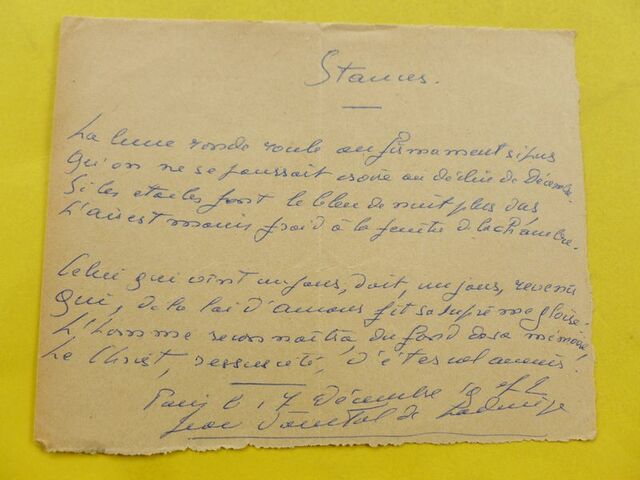 Stances.
La lune ronde roule au firmament si pur
Qu'on ne se pourrait croire au déclin de Décembre.
Si les etoiles font le bleu de nuit plus
L'air est moins froid à la fenêtre de la chambre.
Celui qui vint un jour, doit, un jour, revenir
Qui, de la loi d'amour fit sa suprême gloire.
L'homme reconnaîtra, du fond de sa mémoire,
Le Christ, ressuscité, d'éternel avenir.
Paris 17 Décembre
Jean de